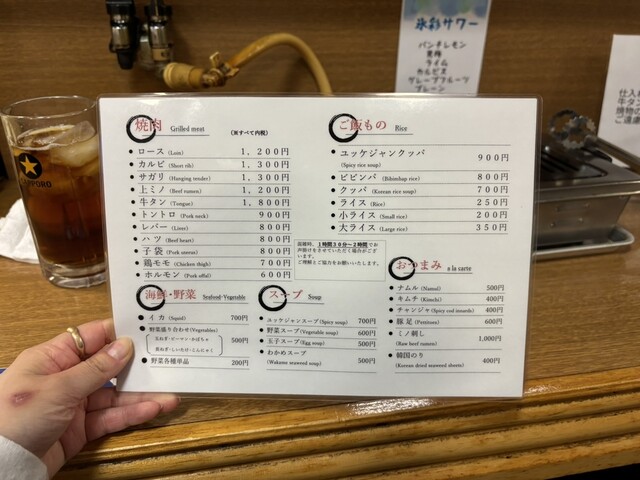 氷彩サワー
パンチレモン
ライム
カルピス
グレープフルーツ
プレーン
仕入
牛タン
焼物の
ご遠慮
SAPPORO
焼肉 Grilled meat (※すべて内税)
・ロース (Loin) 1,200円
・カルビ (Short rib) 1,300円
・サガリ (Hanging tender) 1,300円
・上ミノ (Beef rumen) 1,200円
・牛タン (Tongue) 1,800円
・トントロ (Pork neck) 900円
・レバー (Liver) 800円
・ハツ (Beef heart) 800円
・子袋 (Pork uterus) 800円
・鶏モモ (Chicken thigh) 700円
・ホルモン (Pork offal) 600円
ご飯もの Rice
・ユッケジャンクッパ 900円
(Spicy rice soup)
・ビビンバ (Bibimbap rice) 800円
・クッパ (Korean rice soup) 700円
・ライス (Rice) 250円
・小ライス (Small rice) 200円
・大ライス (Large rice) 350円
混雑時、1時間30分～2時間でお
声掛けをさせていただく場合がござ
います。
ご理解とご協力をお願いいたします。
海鮮・野菜 Seafood・Vegetable
・イカ (Squid) 700円
・野菜盛り合わせ (Vegetables) 500円
玉ねぎ・ピーマン・かぼちゃ
長ねぎ・しいたけ・こんにゃく
・野菜各種単品 200円
スープ Soup
・ユッケジャンスープ (Spicy soup) 700円
・野菜スープ (Vegetable soup) 600円
・玉子スープ (Egg soup) 500円
・わかめスープ 500円
(Wakame seaweed soup)
おつまみ a la carte
・ナムル (Namul) 500円
・キムチ (Kimchi) 400円
・チャンジャ (Spicy cod innards) 400円
・豚足 (Pettitoes) 600円
・ミノ刺し 1,000円
(Raw beef rumen)
・韓国のり 400円
(Korean dried seaweed sheets)